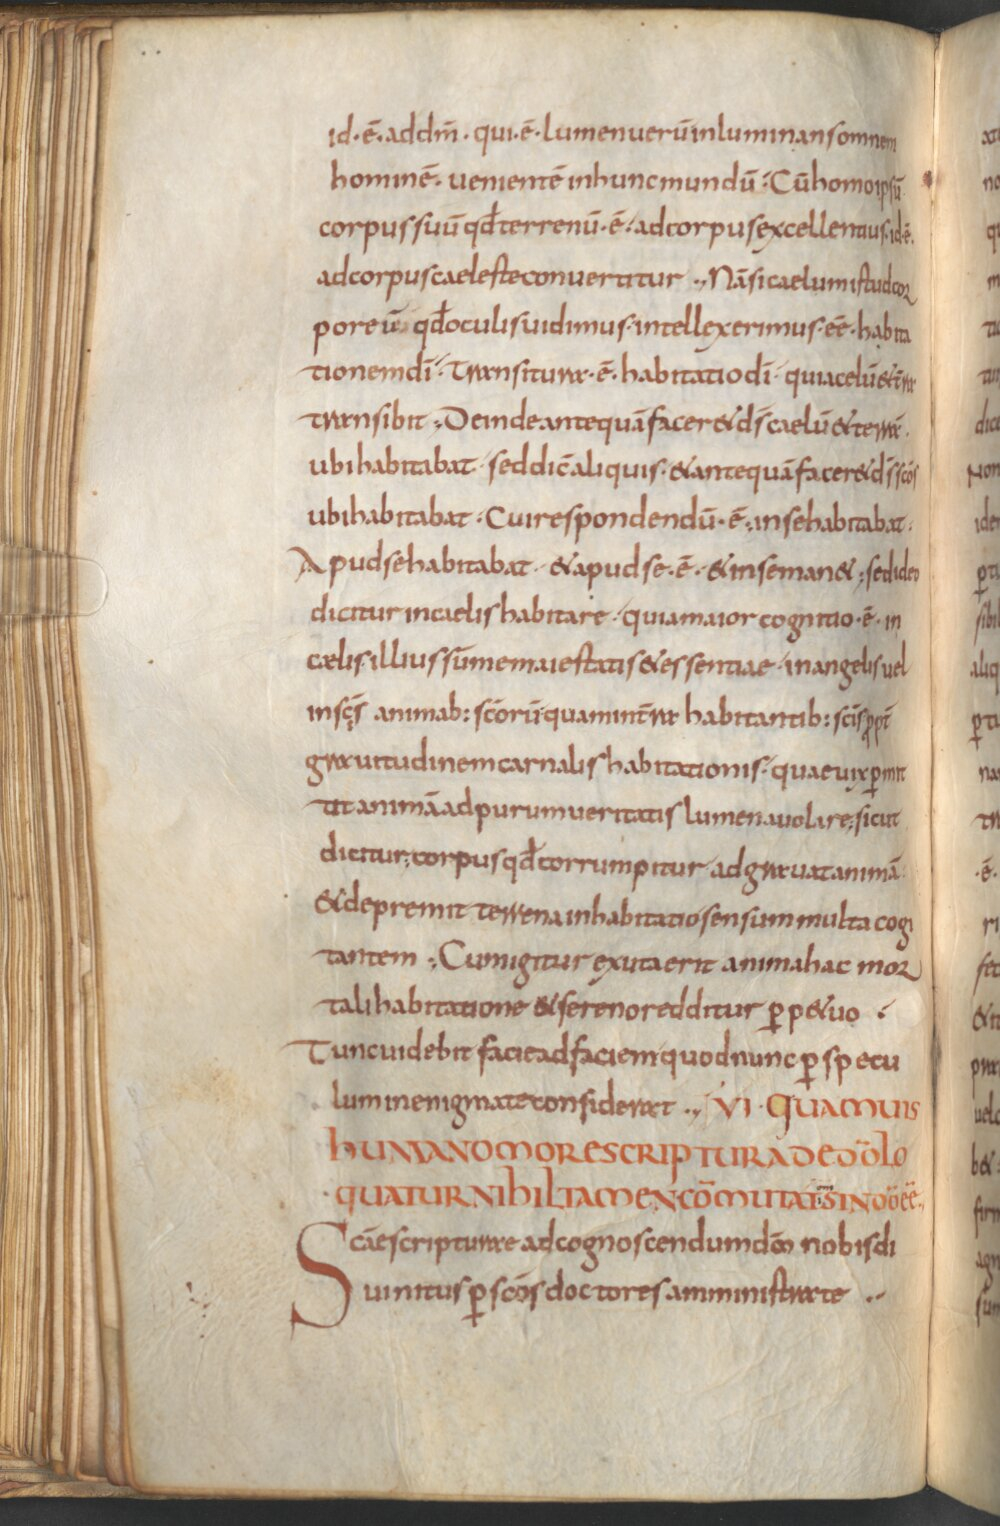 id·ē· ad dm̄· qui·ē· lumen uerū inluminans omnem
hominē· uenientē in hunc mundū· Cū homo ipsū
corpus suū qđ terrenū·ē· ad corpus excellentius·id·ē·
ad corpus caeleste conuertitur ·, Nā si caelum istud cor
poreū qđ oculis uidimus· intellexerimus· eē· habita
tionem dī· transitura·ē· habitatio dī· quia celū & tr̄ra
transibit ·, Deinde antequā facer& ds̄ caelū & terrā·
ubi habitabat· sed dic̄ aliquis· & antequā facer& ds̄ scōs
ubi habitabat· Cui respondendū·ē· in se habitabat·
Apud se habitabat· & apud se·ē· & in se man&·, sed ideo
dicitur in caelis habitare· quia maior cognitio·ē· in
cælis· illius sūme maiestatis & essentiae· in angelis uel
in sc̄is animab: scōrū· quam in tr̄ra habitantib: scīs ꝓpt̄
grauitudinem carnalis habitationis· quae uix ꝑmit
tit animā ad purum ueritatis lumen auolare; sicut
dicitur; corpus qđ corrumpitur adgrauat animā·
& depremit terrena inhabitatio sensum multa cogi
tantem ·, Cum igitur exuta erit anima hac mor
tali habitatione & sereno redditur ꝑp&uo ·
Tunc uidebit facie ad faciem quod nunc ꝑ specu
lum in enigmate considerat ·, VI· QUAMUIS
HUMANO MORE SCRIPTURA DE DŌ LO
QUATUR NIHIL TAMEN CŌMUTATIŌNIS IN DŌ EĒ·,
Scāe scripturae ad cognoscendum dm̄ nobis di
uinitus ꝑ scōs doctores amministratae ··